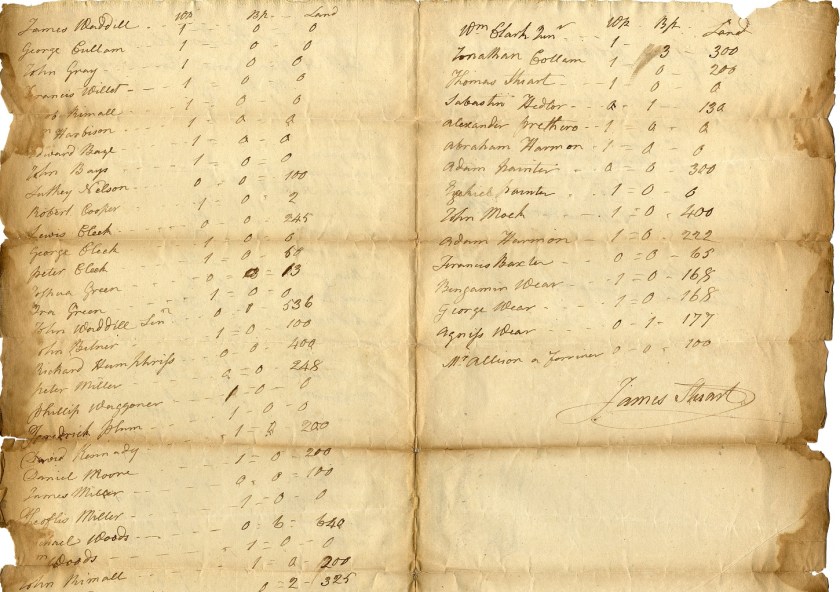 Wp Bp Land
James Waddill - - 1 - 0 0
George Cullam 1 - 0 - 0
John Gray - 1 0 0
Francis Willet - - 1 0 0
Jacob Rimall 1 0 0
Harbison - - 1 - a - a
Edward Bage - - 1 - 0 - 0
John Bays - - 1 = 0 = 0
Luthey Nelson - - 0 - 0 - 100
Robert Cooper 1 - 0 - 2
Lewis Cleek - - 0 - 0 - 245
George Cleek - - 1 - 0 - 0
Peter Cleek - - 1 - 0 - 50
Joshua Green - - 0 - 0 = 13
Ira Green - - 1 - 0 - 0
John Waddill Senr - 0 - 1 536
John Bitner - - 1 = 0 - 100
Richard Humphriss - 0 - 0 - 400
Peter Miller - - 0 = 0 - 248
Phillip Waggoner - - 1 - 0 - 0
Fredrick Plum - - 1 - 0 - 0
David Kennady - - 1 = 0 200
Daniel Moore - - 1 - 0 - 200
James Miller - - 0 - 0 - 100
Theoflis Miller - - 1 = 0 - 0
Michael Woods - - 0 = 6 = 640
Woods - - 1 = 0 - 0
John Rimall - - 1 - 0 - 200
0 = 2 - 325
Wp Bp Land
Wm Clark Junr 1 - 3 - 300
Jonathan Collam 1 - 0 - 200
Thomas Stuart - - 1 - 0 - 0
Sabastin Hedlor - - 0 - 1 - 130
Alexander Brethero - - 1 = 0 - 0
Abraham Harmon - - 1 = 0 - 0
Adam Painter - - 0 = 0 - 300
Ezekiel Painter - - 1 = 0 - 0
John Mock - - 1 = 0 - 400
Adam Harmon - - 1 = 0 - 222
Francis Baxter - - 0 = 0 - 65
Bengamin Wear - - 1 = 0 - 168
George Wear - - 1 = 0 - 168
Agniss Wear - - 0 - 1 - 177
Mr Allison a Forriner 0 - 0 - 100
James Stuart